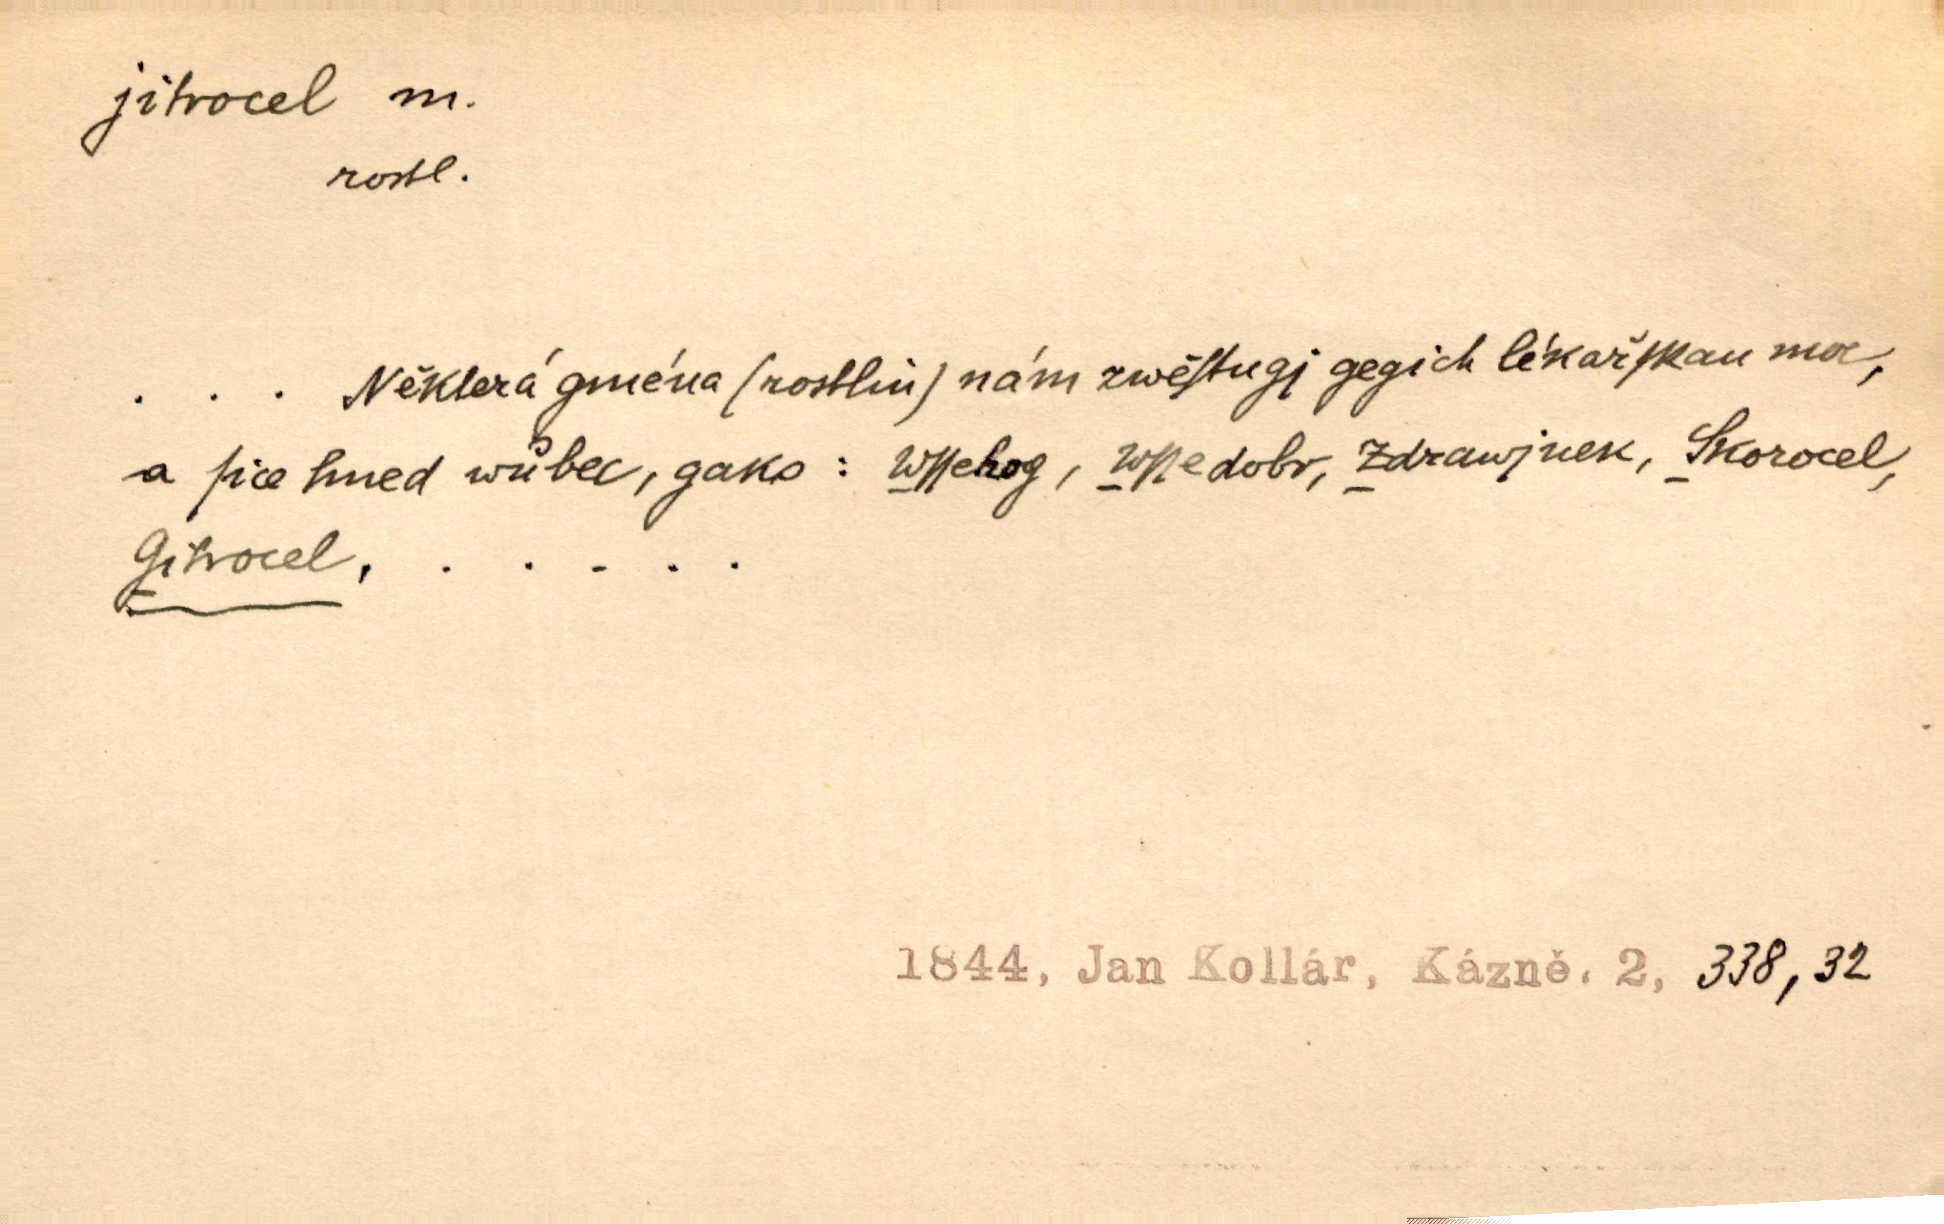 jitrocel m.
rostl.
. . . Některá gména (rostlin) nám zwěſtugj gegich lékařſkau moc,
a ſice hned wůbec, gako : Wſſehog, Wſſedobr, Zdrawjnek, Skorocel,
Gitrocel, . . . . .
1844, Jan Kollár, Kázně. 2, 338,32